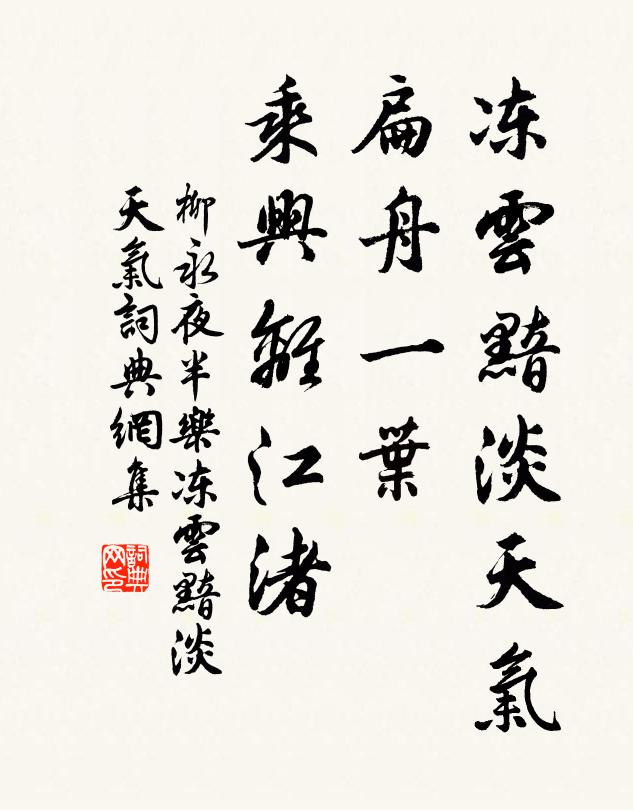 冻雲黯淡天氣
扁舟一葉
乘興離江渚
柳永夜半樂冻雲黯淡
天氣詞典網集
詞典
网印